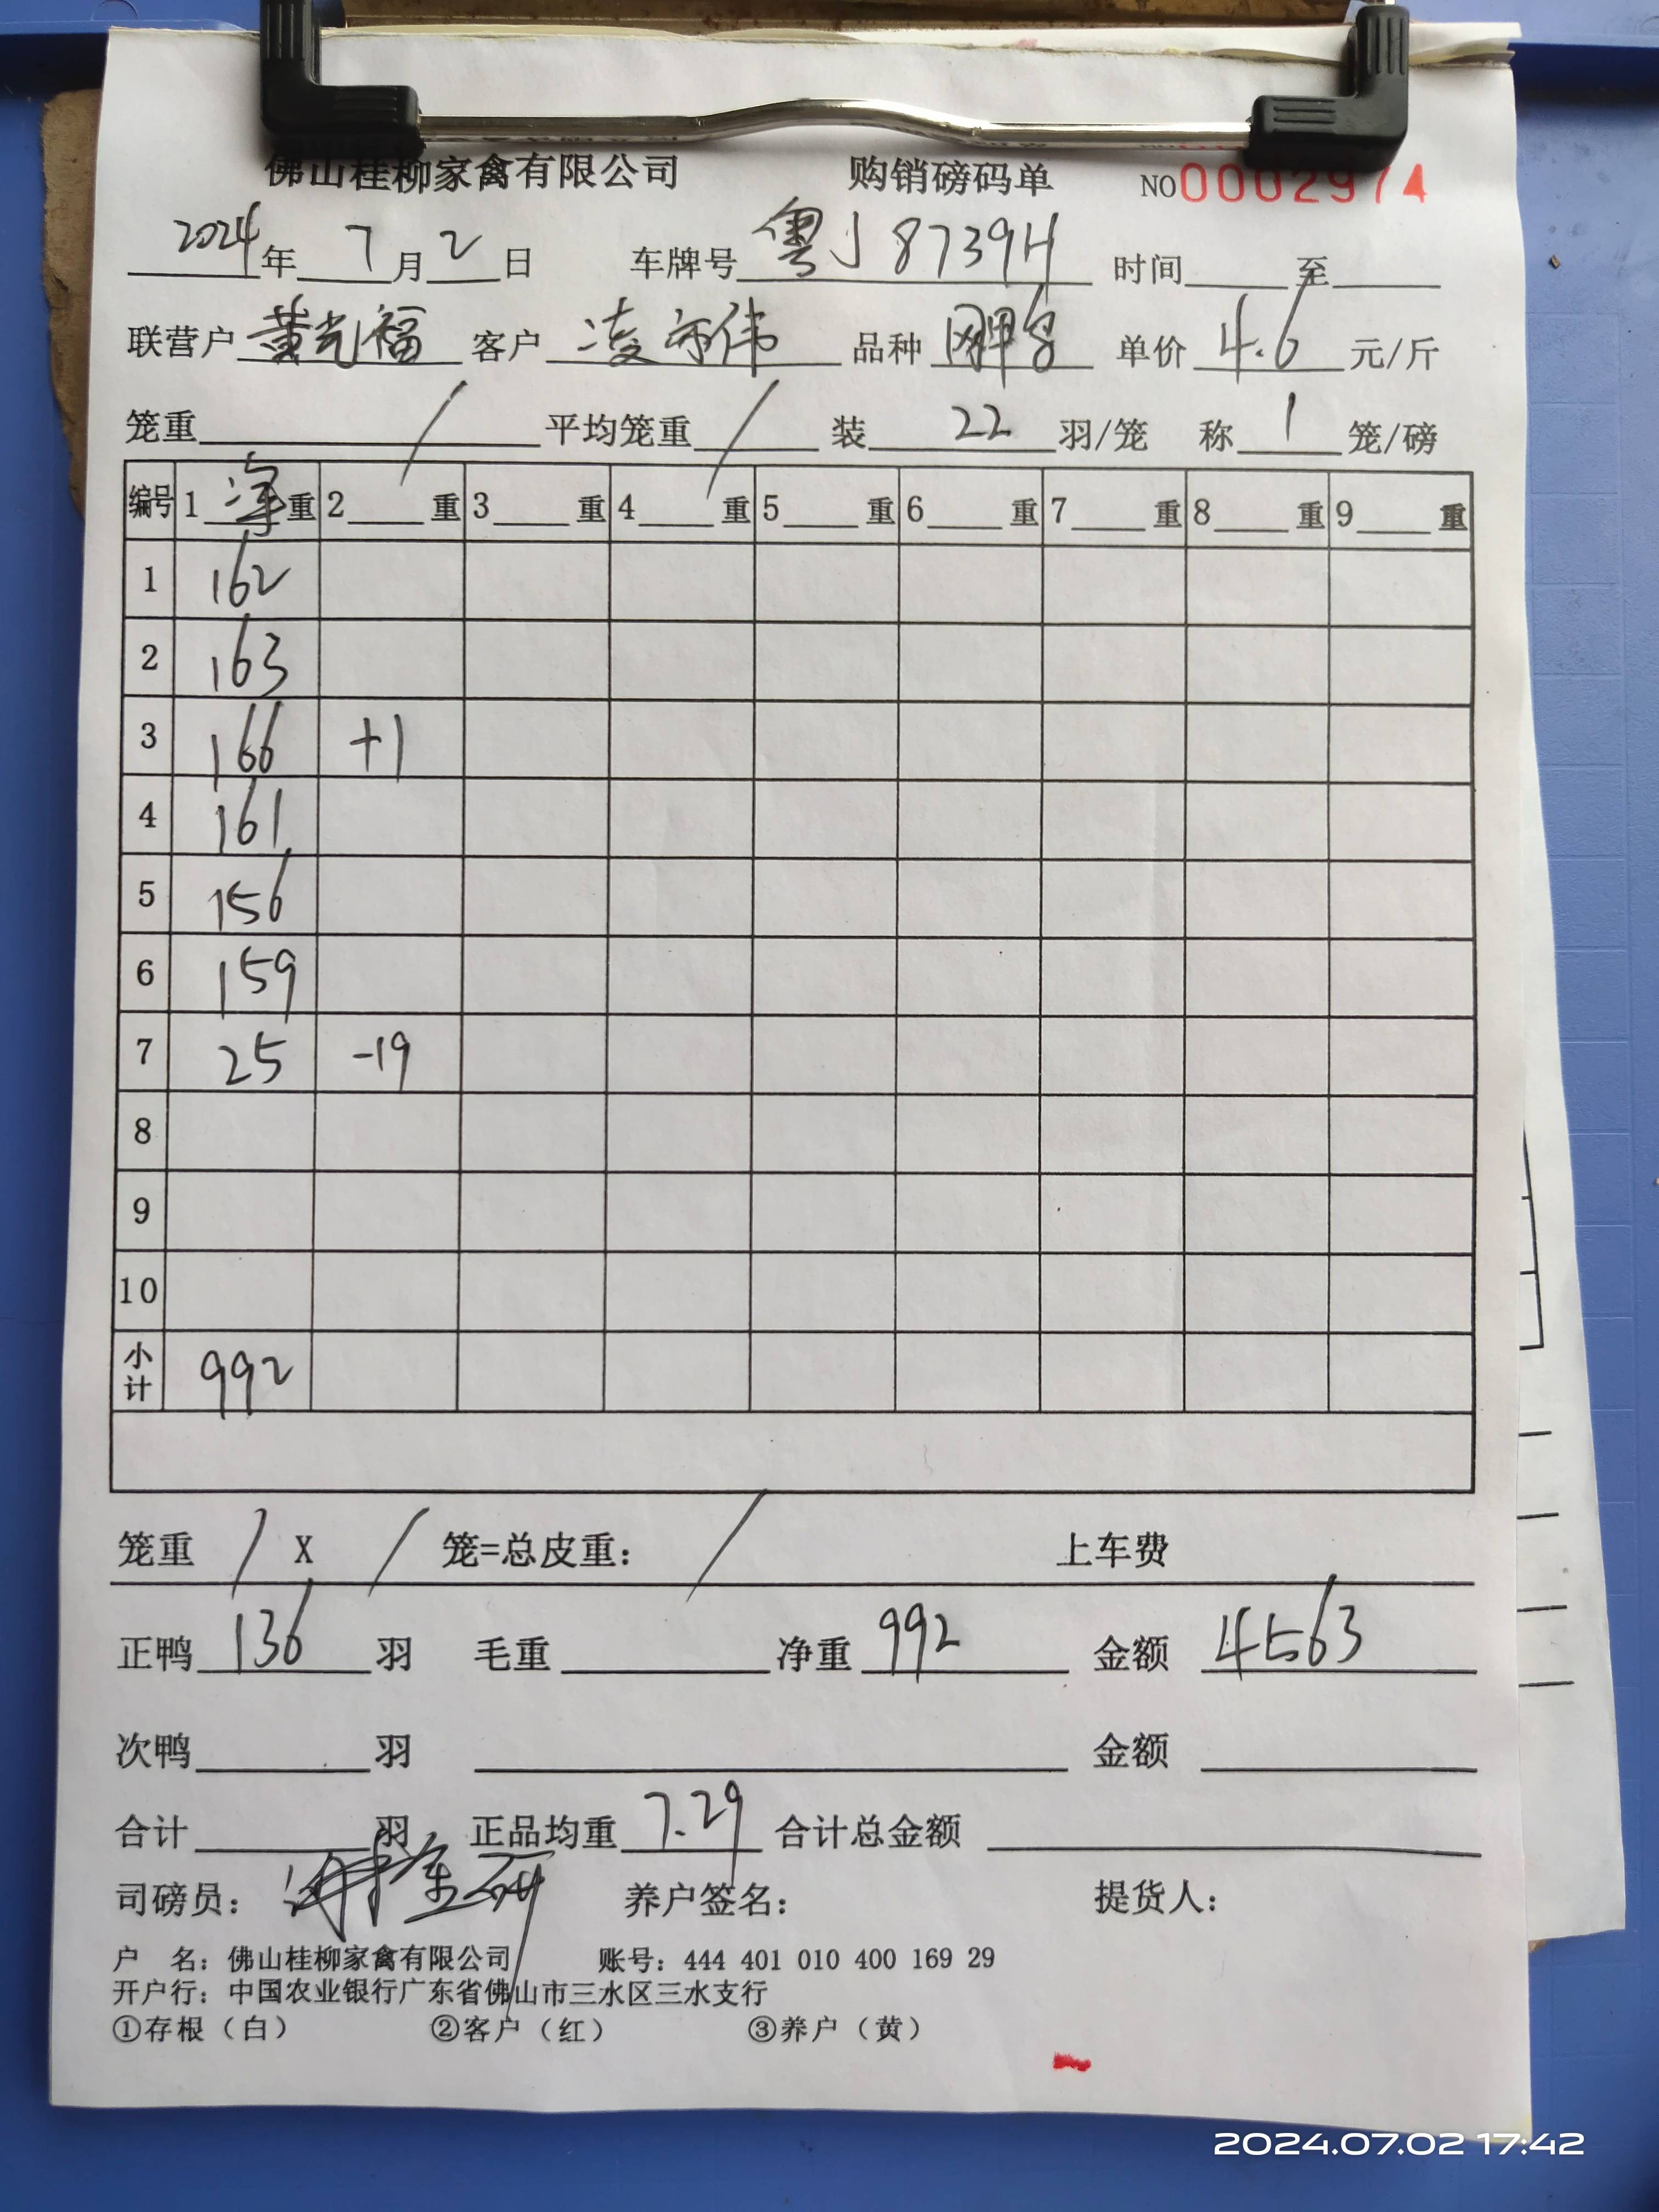 佛山桂柳家禽有限公司 购销磅码单 NO0002974
2024年7月2日 车牌号 粤J8739H 时间 至
联营户 黄光福 客户 凌 伟 品种 单价 4.6 元/斤
笼重 / 平均笼重 / 装 22 羽/笼 称 1 笼/磅
编号 1 净 重 2 重 3 重 4 重 5 重 6 重 7 重 8 重 9 重
1 162
2 163
3 166 +1
4 161
5 156
6 159
7 25 -19
8
9
10
小计 992
笼重 / X / 笼=总皮重: / 上车费
正鸭 136 羽 毛重 净重 992 金额 4563
次鸭 羽 金额
合计 羽 正品均重 7.29 合计总金额
司磅员: 养户签名: 提货人:
户 名: 佛山桂柳家禽有限公司 账号: 444 401 010 400 169 29
开户行: 中国农业银行广东省佛山市三水区三水支行
①存根（白） ②客户（红） ③养户（黄）
2024.07.02 17:42